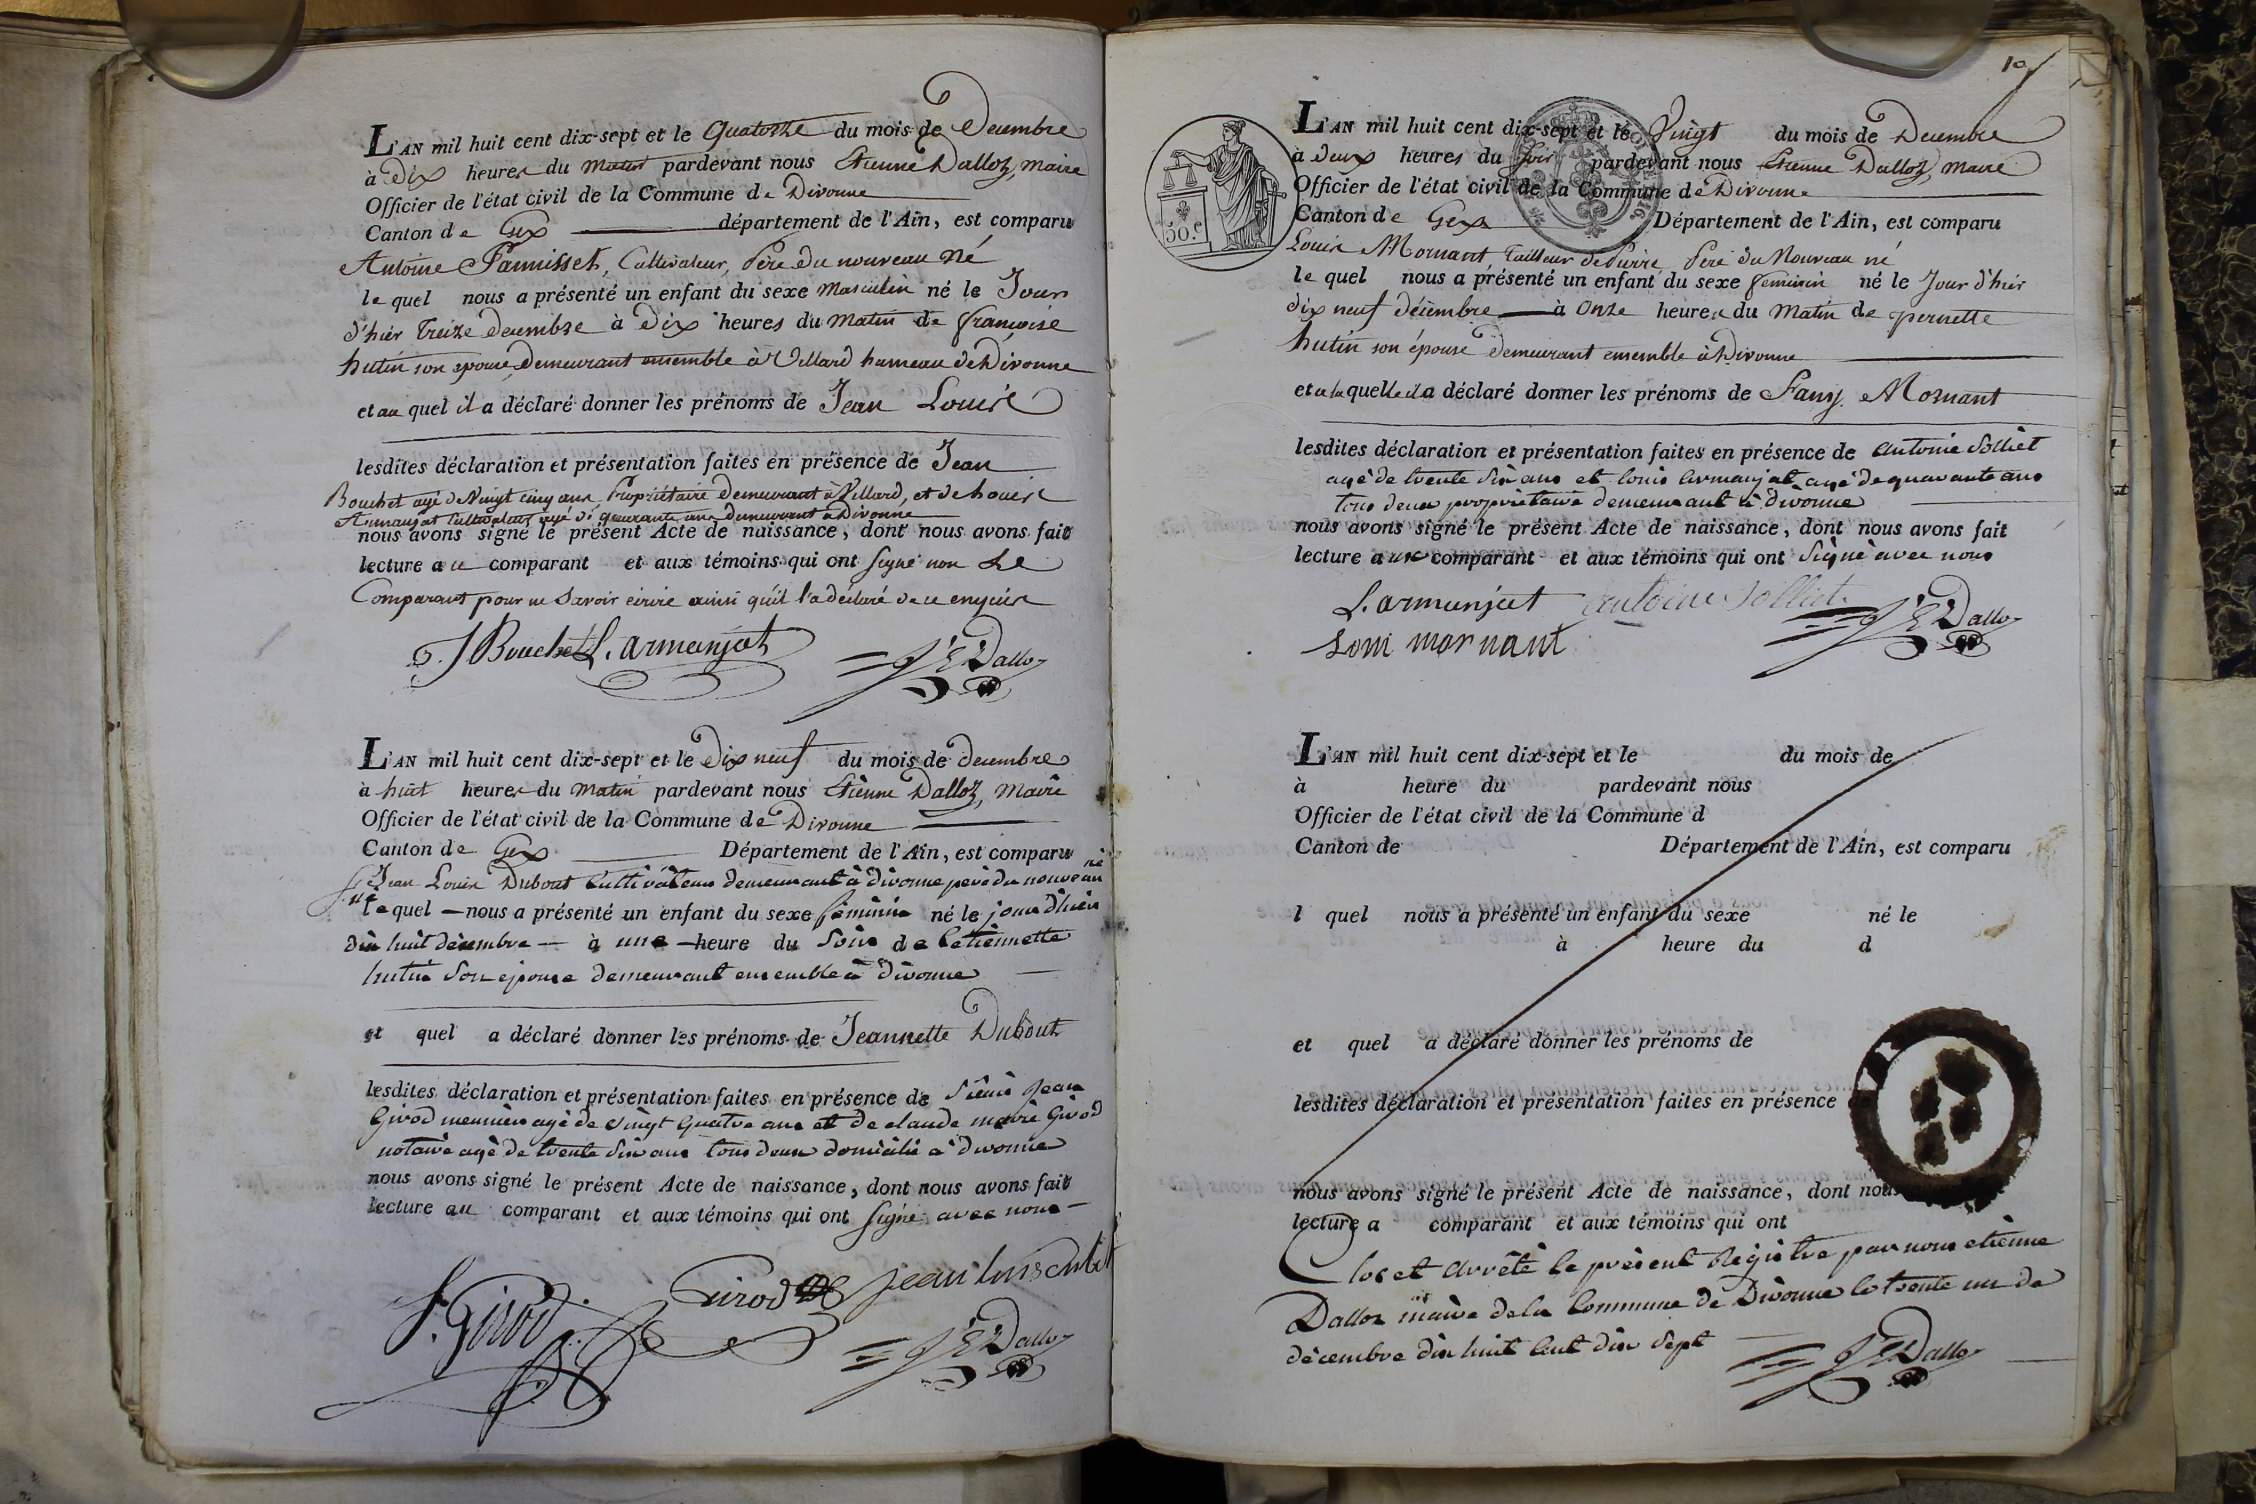 L'AN mil huit cent dix-sept et le Quatorze du mois de Decembre
à Dix heures du Matin pardevant nous Etienne Dalloz, Maire
Officier de l'état civil de la Commune de Divonne
Canton de Gex département de l'Ain, est comparu
Antoine Pannisset, Cultivateur, Père du nouveau Né
le quel nous a présenté un enfant du sexe Masculin né le Jour
d'hier Treize decembre à Dix heures du Matin de françoise
hutin son epouse, demeurant ensemble à Villard hameau de Divonne
et au quel il a déclaré donner les prénoms de Jean Louis
lesdites déclaration et présentation faites en présence de Jean
Bouchet agé de Vingt cinq ans Propriétaire demeurant à Villard, et de Louis
Armanjat Cultivateur agé de quarante ans demeurant à Divonne
nous avons signé le présent Acte de naissance, dont nous avons fait
lecture au comparant et aux témoins qui ont signé non Le
Comparant pour ne savoir écrire ainsi qu'il l'a déclaré de ce enquis
J Bouchet L. armanjat J E Dalloz
L'AN mil huit cent dix-sept et le Dix neuf du mois de decembre
à huit heures du Matin pardevant nous Etienne Dalloz, Maire
Officier de l'état civil de la Commune de Divonne
Canton de Gex Département de l'Ain, est comparu
Jean Louis Dubout Cultivateur demeurant à divonne père du nouveau né
le quel nous a présenté un enfant du sexe féminin né le jour d'hier
dix huit décembre à une heure du Soir de Etiennette
hutin Son epouse demeurant ensemble à divonne
et quel a déclaré donner les prénoms de Jeannette Dubout
lesdites déclaration et présentation faites en présence de Jean
Girod meunier agé de vingt quatre ans et de claude marie Girod
notaire agé de trente six ans tous deux domicilié à divonne
nous avons signé le présent Acte de naissance, dont nous avons fait
lecture au comparant et aux témoins qui ont signé avec nous
J. Girod Girod jean luis J E Dalloz
10
50.c
L'AN mil huit cent dix-sept et le Vingt du mois de Decembre
à deux heures du Soir pardevant nous Etienne Dalloz, Maire
Officier de l'état civil de la Commune de Divonne
Canton de Gex Département de l'Ain, est comparu
Louis Mornant Tailleur de Pierre, Père du Nouveau né
le quel nous a présenté un enfant du sexe féminin né le Jour d'hier
dix neuf décembre à Onze heures du Matin de pernette
hutin son épouse demeurant ensemble à Divonne
et a la quelle il a déclaré donner les prénoms de Fany Mornant
lesdites déclaration et présentation faites en présence de antoine Solliet
agé de trente six ans et louis armanjat agé de quarante ans
tous deux propriétaire demeurant à divonne
nous avons signé le présent Acte de naissance, dont nous avons fait
lecture aux comparant et aux témoins qui ont signé avec nous
L. armanjat antoine Solliet J E Dalloz
Loui mornant
L'AN mil huit cent dix-sept et le du mois de
à heure du pardevant nous
Officier de l'état civil de la Commune d
Canton de Département de l'Ain, est comparu
l quel nous a présenté un enfant du sexe né le
à heure du d
et quel a déclaré donner les prénoms de
lesdites déclaration et présentation faites en présence
nous avons signé le présent Acte de naissance, dont nous
lecture a comparant et aux témoins qui ont
Clos et arrêté le présent Registre par nous etienne
Dalloz maire de la Commune de Divonne le trente un de
décembre dix huit Cent dix Sept J E Dalloz